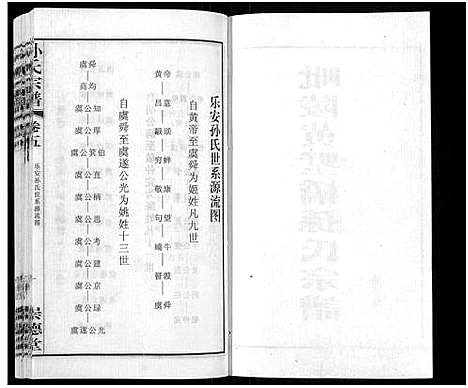 乐安孙氏世系源流图
自黄帝至虞舜为姬姓凡九世
黄帝
昌意
颛顼
穷蝉
敬康
句望
蟜牛
瞽瞍
虞舜
自虞舜至虞遂公光为姚姓十三世
虞舜
商均
虞公知
虞公厚
虞公箕伯
虞公直
虞公柄
虞公愚
虞公考
虞公建
虞公京
虞公绿
虞遂公光
孙氏宗谱
卷五
乐安孙氏世系源流图
崇德堂